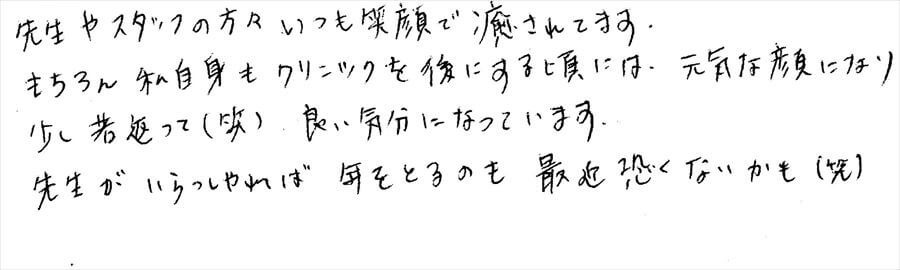 先生やスタッフの方々 いつも笑顔で癒されてます.
もちろん 私自身も クリニックを後にする頃には. 元気な顔になり
少し若返って(笑) 良い気分になっています.
先生が いらっしゃれば 年をとるのも 最近恐くないかも(笑)